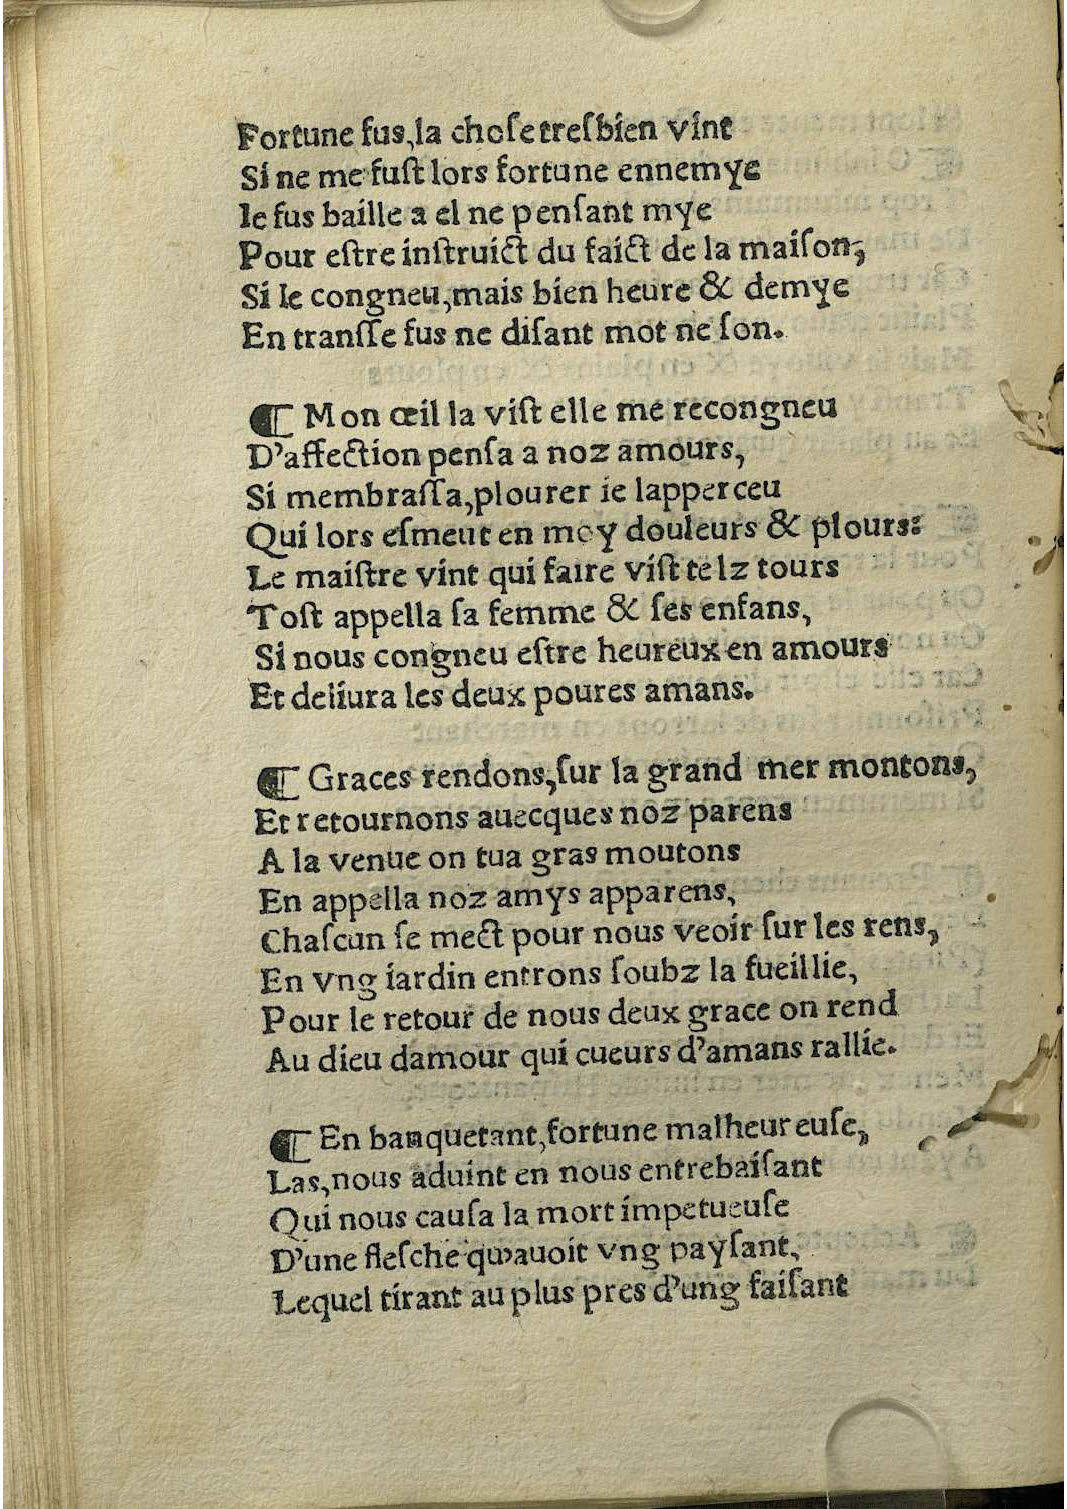 Fortune fus,la choſe treſbien vint
Si ne me fuſt lors fortune ennemye
Ie fus baille a el ne penſant mye
Pour eſtre inſtruict du faict de la maiſon,
Si le congneu,mais bien heure & demye
En tranſſe fus ne diſant mot ne ſon.
¶ Mon œil la viſt elle me recongneu
D'affection penſa a noz amours,
Si membraſſa,plourer ie lapperceu
Qui lors eſmeut en moy douleurs & plours:
Le maiſtre vint qui faire viſt telz tours
Toſt appella ſa femme & ſes enfans,
Si nous congneu eſtre heureux en amours
Et deliura les deux poures amans.
¶ Graces rendons,ſur la grand mer montons,
Et retournons auecques noz parens
A la venue on tua gras moutons
En appella noz amys apparens,
Chaſcun ſe mect pour nous veoir ſur les rens,
En vng iardin entrons ſoubz la fueillie,
Pour le retour de nous deux grace on rend
Au dieu damour qui cueurs d'amans rallie.
¶ En banquetant,fortune malheureuſe,
Las,nous aduint en nous entrebaiſant
Qui nous cauſa la mort impetueuſe
D'une fleſche qu'auoit vng payſant,
Lequel tirant au plus pres d'ung faiſant